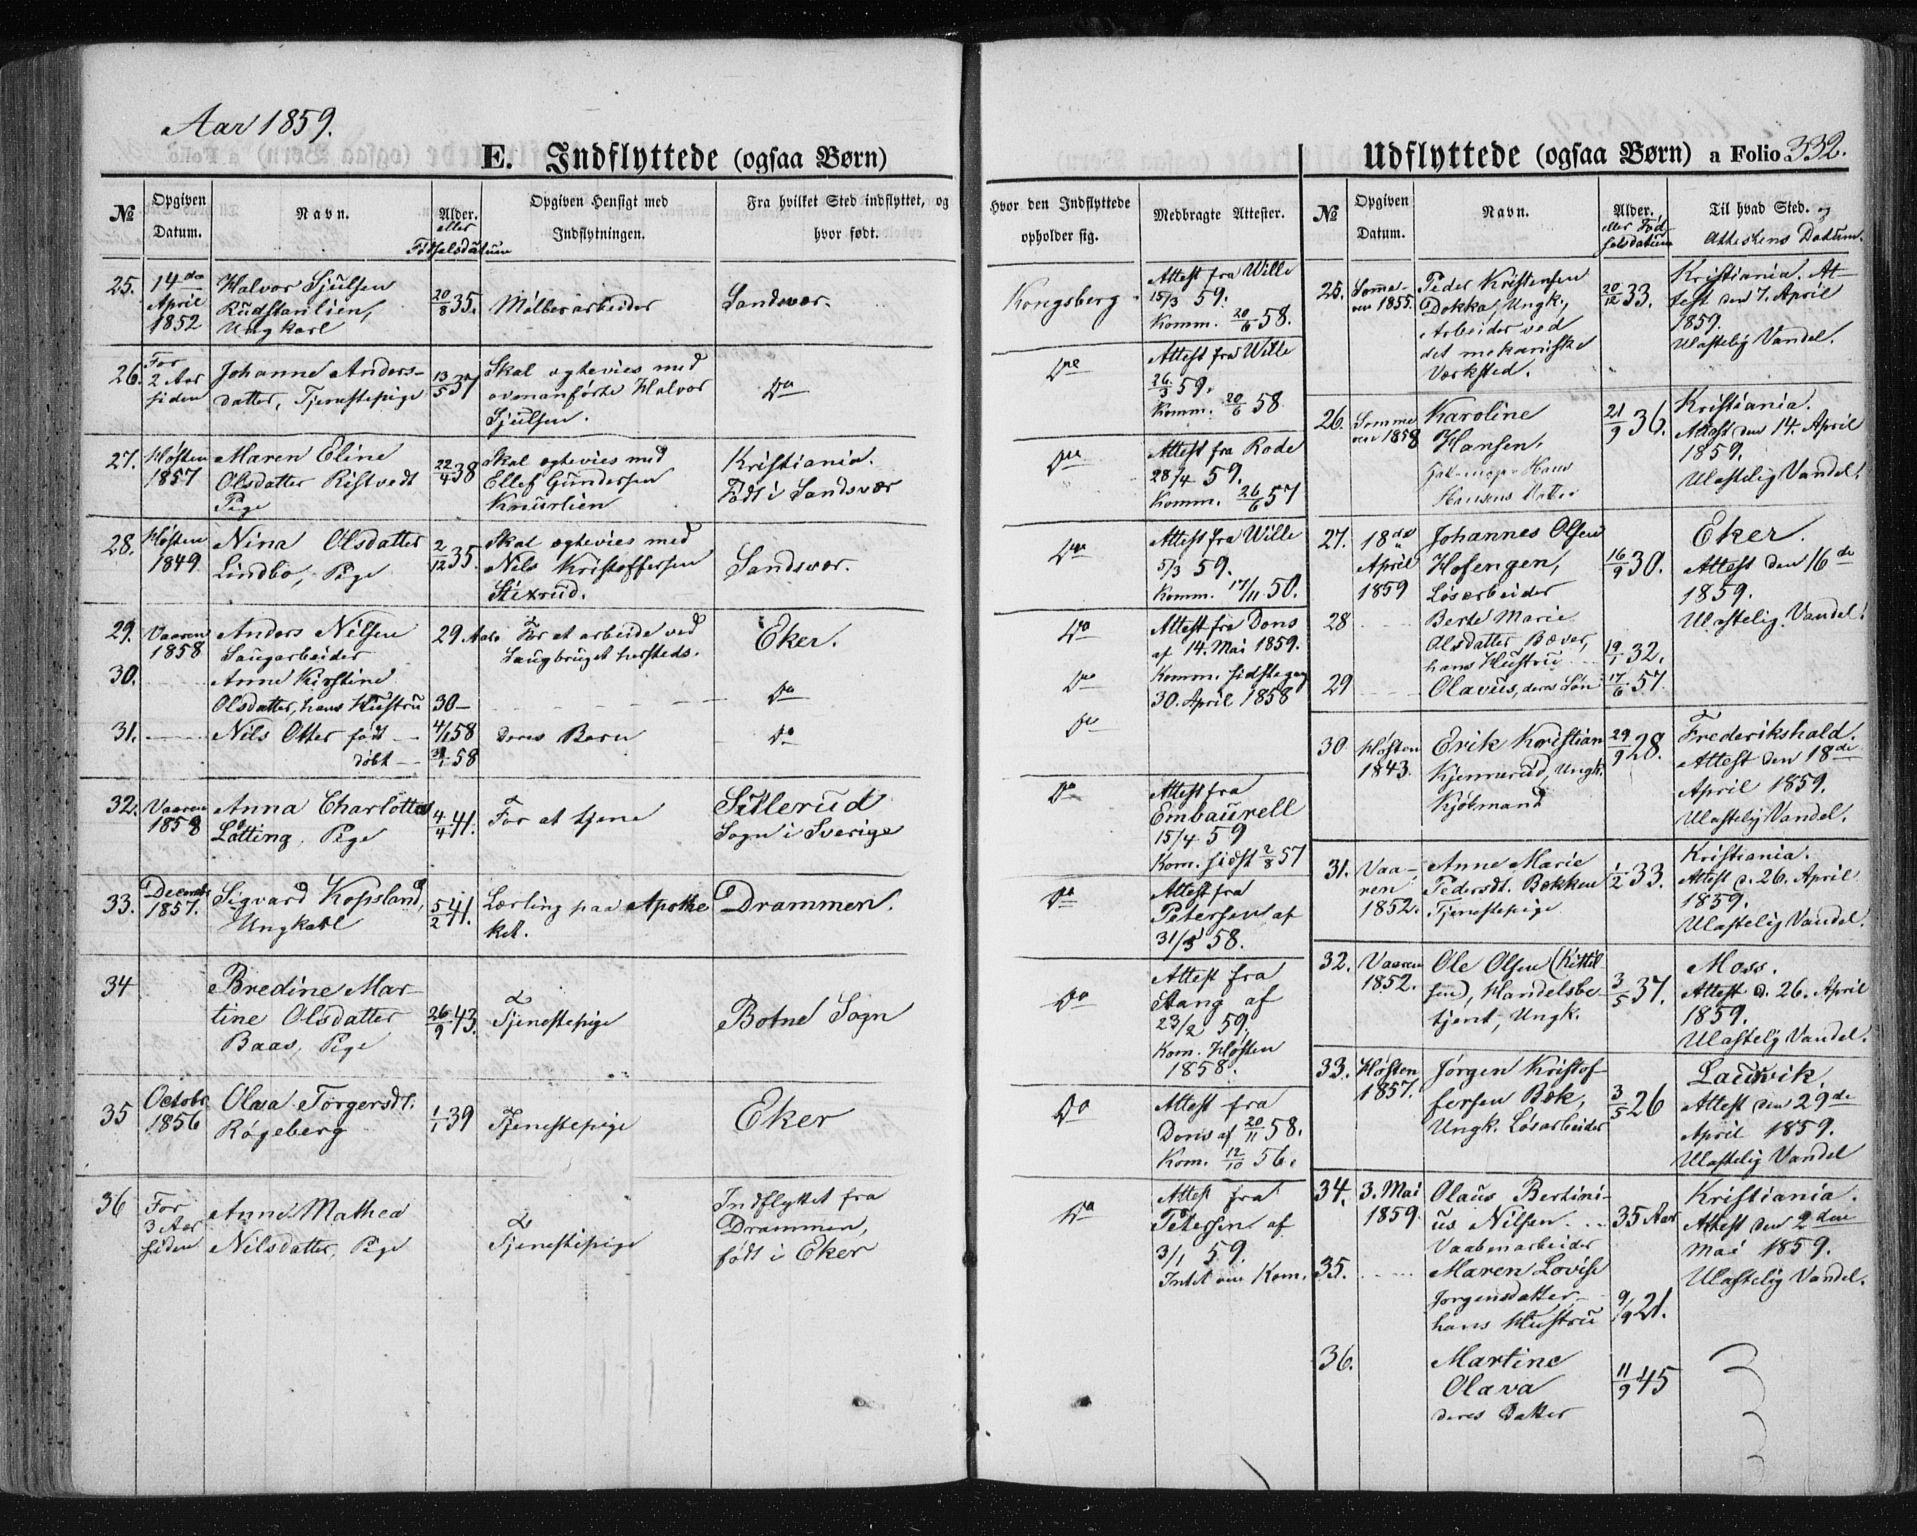 Aar 1859.
E. Indflyttede (ogsaa Børn)
№
Opgiven Datum.
Navn.
Alder. eller Fødselsdatum
Opgiven Hensigt med Indflytningen.
Fra hvilket Sted indflyttet, og hvor født.
Hvor den Indflyttede opholder sig.
Medbragte Attester.
25. 14de April 1852
Halvor Sjulsen
Rudstanlien,
Ungkarl
20/8 35.
Sandsvær.
Kongsberg.
Attest fra Wille
15/3 59.
Komm. 20/6 58.
26. For 2 Aar siden
Johanne Anders-
datter, Tjenestepige
13/5 37
Skal ægtevies med
ovenanførte Halvor
Sjulsen.
Do
Do
Attest fra Wille
26/3 59.
Komm. 20/6 58.
27. Høsten 1857
Maren Eline
Olsdatter Ristvedt
Pige
22/4 38
Skal ægtevies med
Ellef Gundersen
Knurlien
Kristiania.
Født i Sandsvær
Do
Attest fra Rode
28/4 59.
Komm. 26/6 57
28. Høsten 1849.
Nina Olsdatter
Lindbo, Pige
2/12 35.
Skal ægtevies med
Nils Kristoffersen
Stixrud.
Sandsvær.
Do
Attest fra Wille
5/3 59.
Komm. 17/11 50.
29. Vaaren 1858
Anders Nilsen
Saugarbeider
29 Aar
For at arbeide ved
Saugbruget hersteds.
Eker.
Do
Attest fra Dons
af 14. Mai 1859.
30.
Anne Kirstine
Olsdatter, hans Hustru
30 –
Do
Do
Komm. sidstegang
30. April 1858
31.
Nils Otter født – 4/1 58
døbt – 31/1 58
Deres Barn
Do
Do
32. Vaaren 1858
Anna Charlotta
Lötting, Pige
4/4 41.
For at tjene
Sillerud
Sogn i Sverige
Do
Attest fra
Embaurell
15/4 59
Kom. sidst 2/8 57
33. Decembr 1857.
Sigvard Kopsland,
Ungkarl
5/2 41.
Lærling paa Apothe
ket.
Drammen.
Do
Attest fra
Petersen af
31/5 58.
34
Bredine Mar-
tine Olsdatter
Baas, Pige
26/9 43.
Tjenestepige
Botne Sogn
Do
Attest fra
Stang af
23/2 59.
Kom. Høsten
1858.
35 Octobr 1856
Olava Torgersdt.
Røgeberg
1/1 39
Tjenestepige
Eker
Do
Attest fra
Dons af 20/11 58.
Kom. 12/10 56.
36 For 3 Aar siden
Anne Mathea
Nilsdatter, Pige
Tjenestepige
Indflyttet fra
Drammen,
født i Eker
Do
Attest fra
Petersen af
3/1 59.
Intet om Kom.
Udflyttede (ogsaa Børn) a Folio 332.
№
Opgiven Datum.
Navn.
Alder. eller Fød-
selsdatum
Til hvad Sted. og
Attestens Datum.
25. Somme-
ren 1855.
Peder Kristensen
Dokka, Ungk.,
Arbeider ved
det mekaniske
Værksted.
20/12 33.
Kristiania. At-
test den 7. April
1859.
Ulastelig Vandel.
26. Somme
ren 1858
Karoline
Hansen,
Hans
Hansens Datter
21/9 36.
Kristiania.
Attest den 14. April
1859.
Ulastelig Vandel.
27. 18de April 1859
Johannes Olsen
Hofengen,
Løsarbeider
16/9 30.
Eker.
Attest den 16de
1859.
Ulastelig Vandel.
28
Berte Marie
Olsdatter Bæver,
hans Hustru
19/1 32.
29
Olavus, deres Søn
17/6 57.
30. Høsten 1843.
Erik Kristian
Kjennerud, Ungk.
Kjøbmand
29/9 28.
Frederikshald.
Attest den 18de
April 1859.
Ulastelig Vandel.
31. Vaa-
ren 1852.
Anne Marie
Pedersdt. Bekken
Tjenestepige
1/2 33.
Kristiania.
Attest d. 26. April
1859.
Ulastelig Vandel.
32. Vaaren 1852.
Ole Olsen (Kittil
sen), Handelsbe
tjent, Ungk.
3/5 37.
Moss.
Attest d. 26. April
1859.
Ulastelig Vandel.
33. Høsten 1857.
Jørgen Kristof
fersen Bæk,
Ungk. Løsarbeider
3/5 26
Laurvik.
Attest den 29de
April 1859.
Ulastelig Vandel
34. 3. Mai 1859.
Olaus Bertini-
us Nilsen
Vaabenarbeider
35 Aar
Kristiania.
Attest den 2den
Mai 1859.
Ulastelig Vandel.
35.
Maren Lovise
Jørgensdatter,
hans Hustru
9/9 21.
36.
Martine
Olava
deres Datter
11/9 45